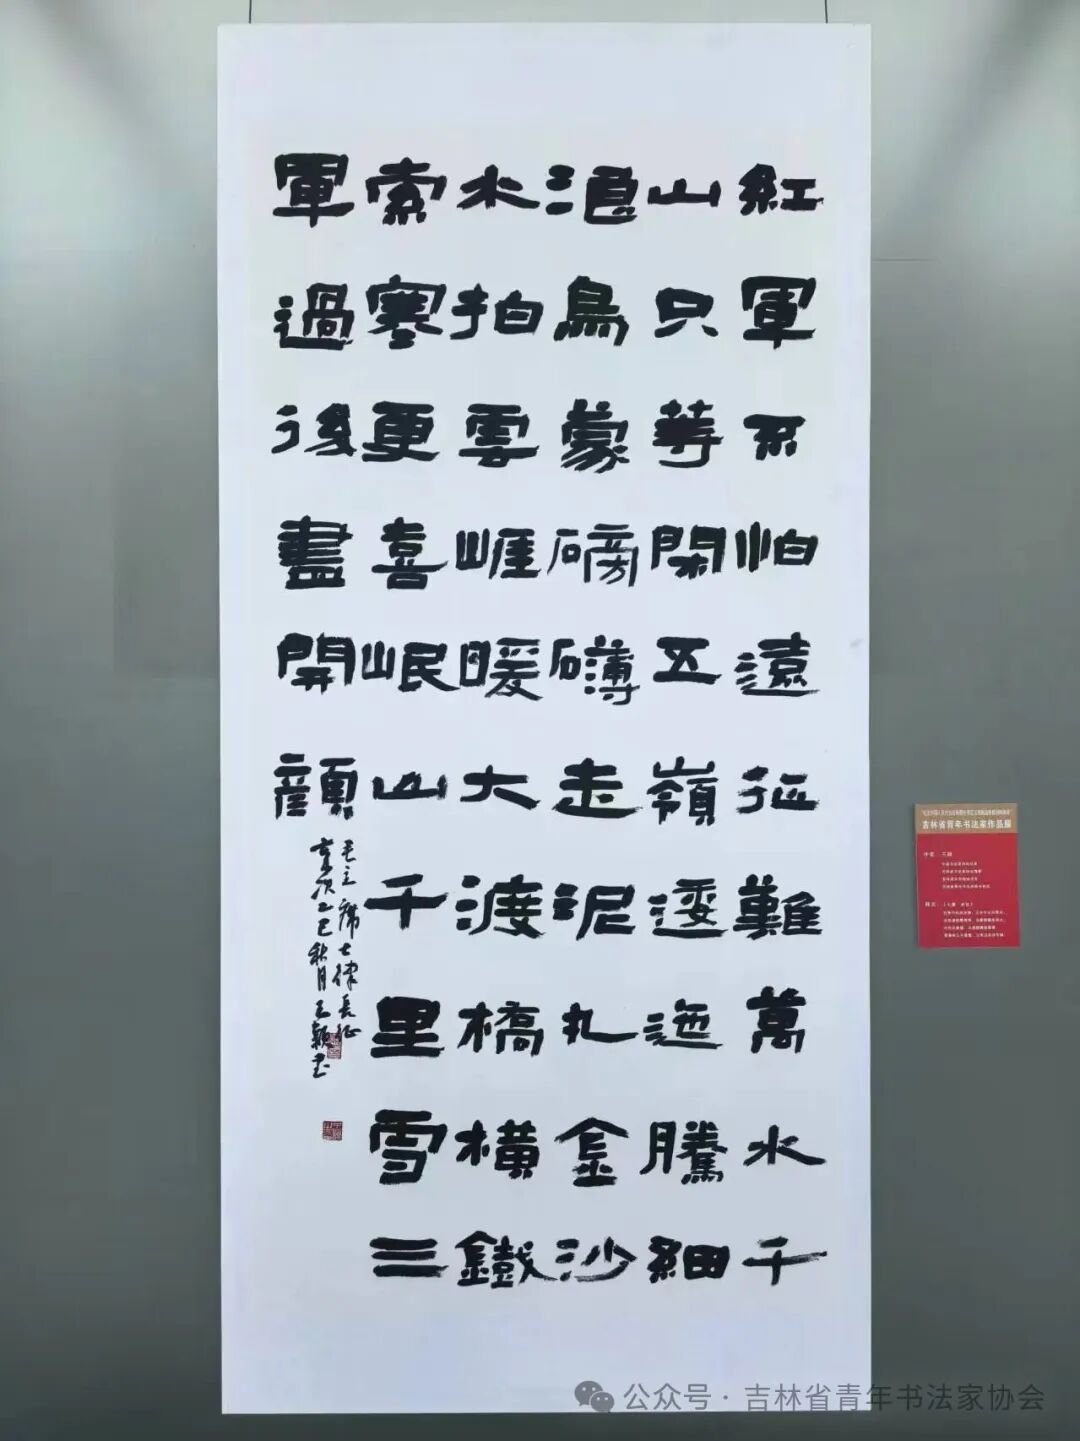 紅軍不怕遠征難萬水千
山只等閑五嶺逶迤騰細
浪烏蒙磅礴走泥丸金沙
水拍雲崕暖大渡橋橫鐵
索寒更喜岷山千里雪三
軍過後盡開顏
毛主席七律長征
歲次乙巳秋月王穎书
吉林省青年书法家作品展
作者：王颖
释文：《七律 长征》
公众号 · 吉林省青年书法家协会